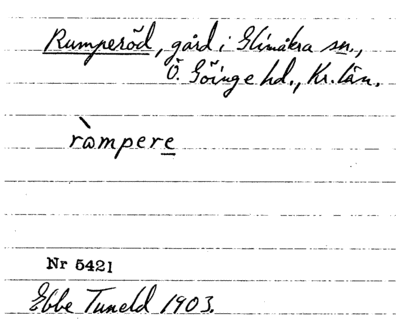 Rumperöd, gård i Glimåkra sn.,
Ö. Göinge hd., Kr. län.
ràmpere
Nr 5421
Ebbe Tuneld 1903.